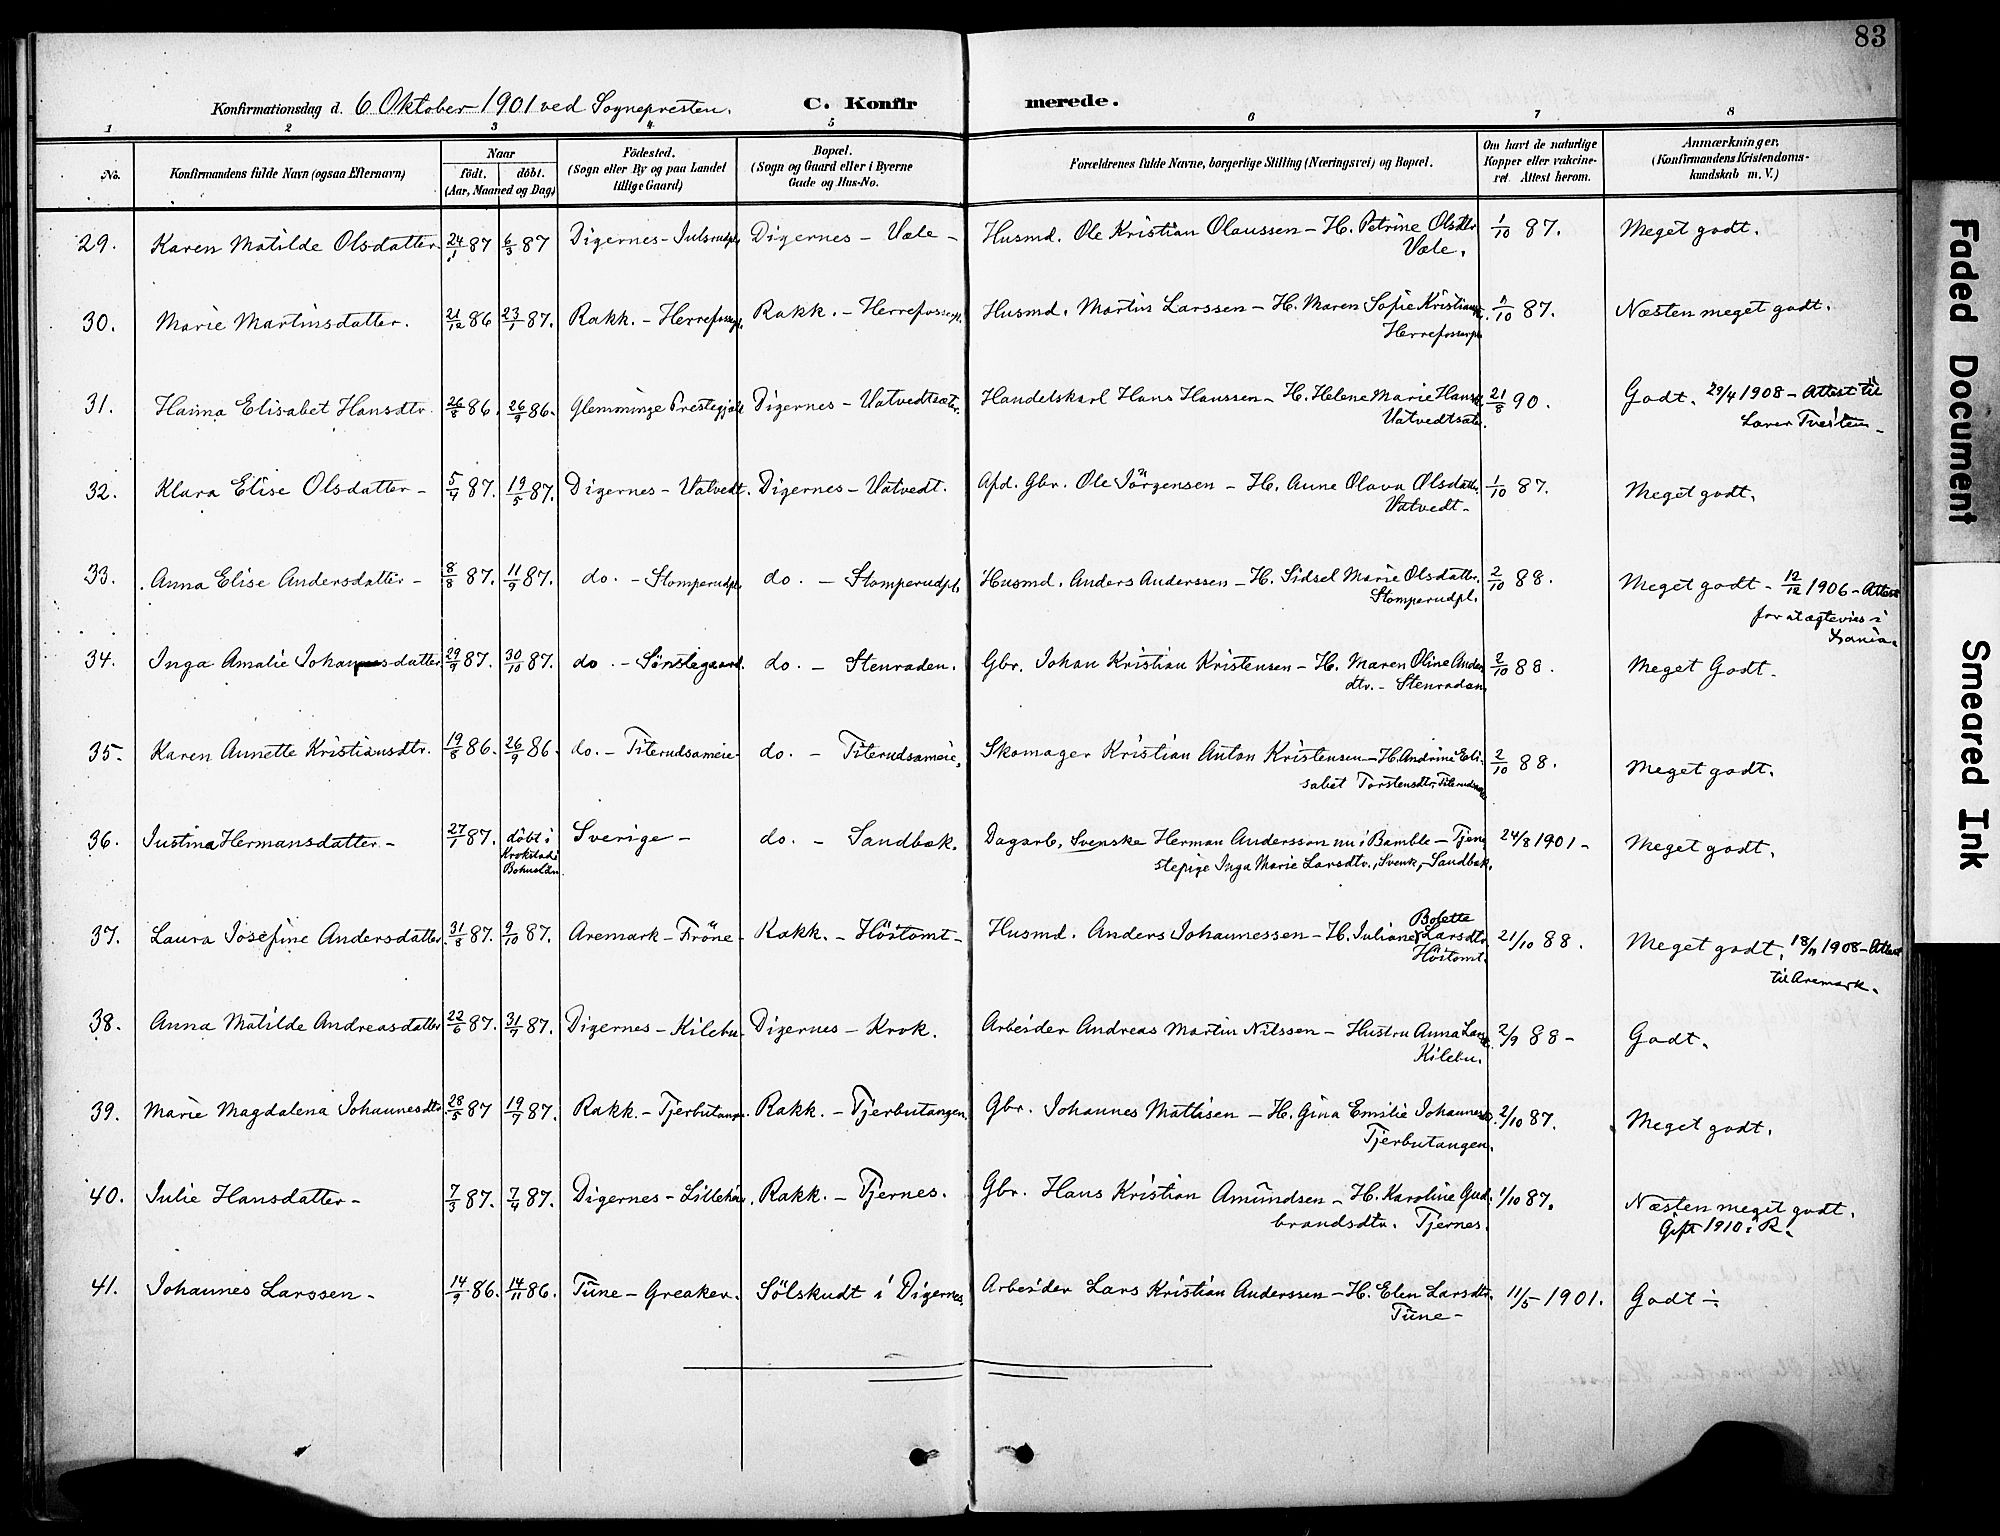 83
Konfirmationsdag d. 6 Oktober 1901 ved Sognepresten. C. Konfirmerede.
1 2 3 4 5 6 7 8
No. Konfirmandens fulde Navn (ogsaa Efternavn) Naar født. døbt. (Aar, Maaned og Dag) Fødested. (Sogn eller By og paa Landet tillige Gaard) Bopæl. (Sogn og Gaard eller i Byerne Gade og Hus-No. Forældrenes fulde Navne, borgerlige Stilling (Næringsvei) og Bopæl. Om havt de naturlige Kopper eller vakcineret. Attest herom. Anmærkninger, (Konfirmandens Kristendomskundskab m. V.)
29. Karen Matilde Olsdatter 24/1 87 6/3 87 Digernes - Julsrudpl. Digernes - Væle - Husmd. Ole Kristian Olaussen - H. Petrine Olsdtr 1/10 87. Meget godt.
Væle.
30. Marie Martinsdatter. 21/12 86 23/1 87. Rakk. - Herrefosserpl. Rakk. - Herrefosserpl. Husmd. Martin Larssen - H. Maren Sofie 1/10 87. Næsten meget godt.
Herrefosserpl.
31. Elisabet Hansdtr. 26/8 86. 26/9 86. Glemminge Prestegjæld Digernes - Vatvedtsæter. Handelskarl Hans Hanssen - H. Helene Marie 21/8 90. Godt. 29/4 1908 - Attest til
Vatvedtsæter.
32. Klara Elise Olsdatter - 5/4 87. 19/5 87. Digernes - Vatvedt. Digernes - Vatvedt. Afd. Gbr. Ole Jörgensen - H. Anne Olava Olsdatter 1/10 87. Meget godt.
Vatvedt -
33. Anna Elise Andersdatter - 8/8 87. 11/9 87. do. - Stomperudpl. do. - Stomperudpl. Husmd. Anders Anderssen - H. Sidsel Marie Olsdatter. 2/10 88. Meget godt - 12/12 1906 - Attest
Stomperudpl. for at ægtevies i
34. Inga Amalie Johannesdatter 29/9 87. 30/10 87. do - Sönstegaard. do. - Stenraden. Gbr. Johan Kristian Kristensen - H. Maren Oline Anders 2/10 88. Meget Godt -
dtr. - Stenraden
35. Karen Annette Kristiansdtr. 19/8 86. 26/9 86. do. - Titerudsameie - do. - Titerudsameie. Skomager Kristian Anton Kristensen - H. Andrine Eli- 2/10 88. Meget godt.
sabet Torstensdtr.,
36. Justina Hermansdatter - 27/1 87. döbt i Krokstad i Bohuslän Sverige - do. - Sandbæk. Dagarb. Svenske Herman Andersson nu i Bamble - Tjene 24/8 1901 - Meget godt.
stepige Inga Marie Larsdtr., Svensk, - Sandbæk.
37. Laura Josefine Andersdatter. 31/8 87. 9/10 87. Aremark - Fröne - Rakk. - Höstomt - Husmd. Anders Johannessen - H. Juliane Bolette Larsdtr. 21/10 88. Meget godt. 18/11 1908 - Attest
Höstomt. til Aremark.
38. Anna Matilde Andreasdatter 22/6 87. 31/7 87. Digernes - Kilebu - Digernes - Krok. Arbeider Andreas Martin Nilssen - Hustru Anna 2/9 88 - Godt.
Kilebu.
39. Marie Magdalena Johannesdtr. 28/5 87 19/7 87. Rakk. - Tjerbutangen. Rakk. - Tjerbutangen. Gbr. Johannes Mattisen - H. Gina Emilie Johannesdtr. 2/10 87. Meget godt.
Tjerbutangen.
40. Julie Hansdatter - 7/3 87. 7/4 87. Digernes - Rakk. - Tjernes. Gbr. Hans Kristian Amundsen - H. Karoline Gud- 1/10 87. Næsten meget godt.
brandsdtr. Tjernes. Gift 1910 i R.
41. Johannes Larssen - 14/9 86. 14/11 86. Tune - Greaker. Sölskudt i Digernes. Arbeider Lars Kristian Anderssen - H. Elen Larsdtr. 11/5 - 1901. Godt ÷
Tune -
Faded Document
Smeared Ink